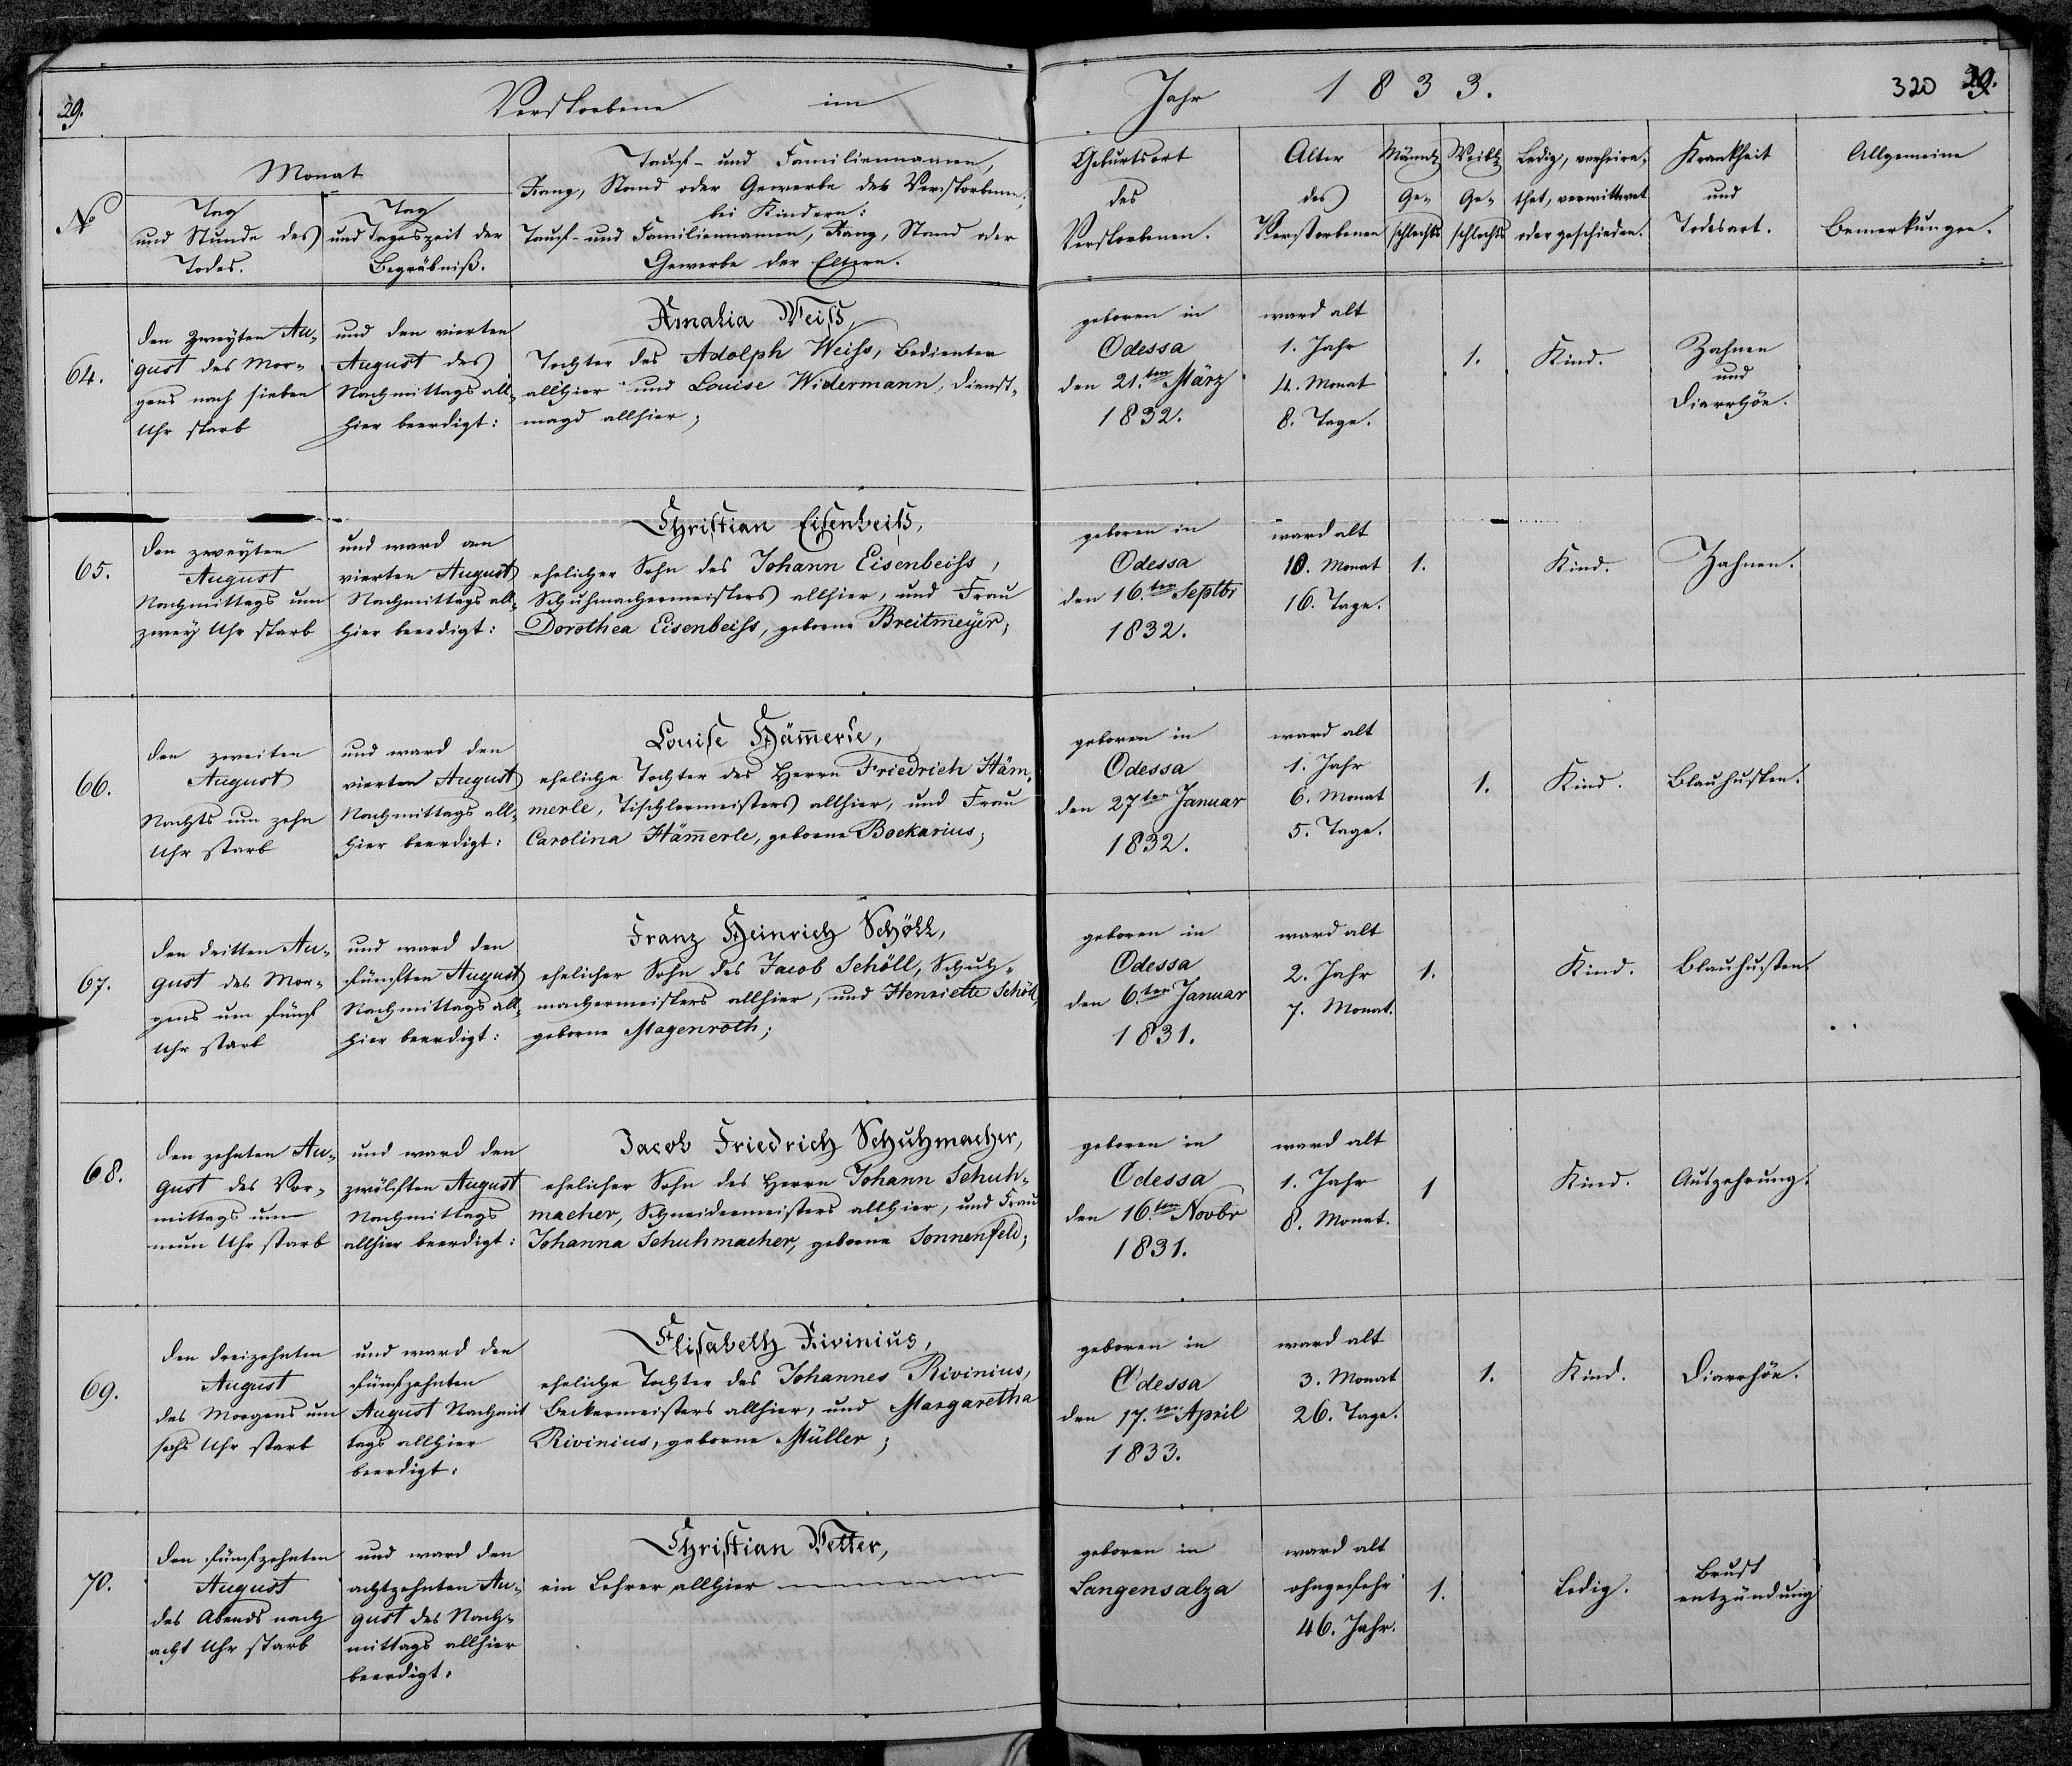 29.
Verstorbene im
Jahr 1833.
320 29.
No
Monat
Tag
und Stunde des
Todes.
Tag
und Tageszeit der
Begräbniß.
Tauf- und Familiennamen,
Rang, Stand oder Gewerbe des Verstorbenen,
bei Kindern:
Tauf- und Familiennamen, Rang, Stand oder
Gewerbe der Eltern.
Geburtsort
des
Verstorbenen.
Alter
des
Verstorbenen
Männl
Ge-
schlechts
Weibl
Ge-
schlechts
Ledig, verheira-
thet, verwittwet
oder geschieden.
Krankheit
und
Todesart.
Allgemeine
Bemerkungen.
64.
den Zweyten Au-
gust des Mor-
gens nach sieben
Uhr starb
und den vierten
August des
Nachmittags all-
hier beerdigt:
Amalia Weiß,
Tochter des Adolph Weiss, Bedienter
allhier und Louise Widermann, Dienst-
magd allhier;
geboren in
Odessa
den 21.ten März
1832.
ward alt
1. Jahr
4. Monat
8. Tage.
1.
Kind.
Zahnen
und
Diarrhöe.
65.
den zweyten
August
Nachmittags um
zwey Uhr starb
und ward am
vierten August
Nachmittags all-
hier beerdigt:
Christian Eisenbeiß,
ehelicher Sohn des Johann Eisenbeiss,
Schuhmachermeisters allhier, und Frau
Dorothea Eisenbeiss, geborne Breitmeyer;
geboren in
Odessa
den 16.ten Septbr
1832.
ward alt
10. Monat
16. Tage.
1.
Kind.
Zahnen.
66.
den zweiten
August
Nachts um zehn
Uhr starb
und ward den
vierten August
Nachmittags all-
hier beerdigt:
Louise Häm̄erle,
eheliche Tochter des Herrn Friedrich Häm-
merle, Tischlermeisters allhier, und Frau
Carolina Häm̄erle, geborne Bockarius;
geboren in
Odessa
den 27ten Januar
1832.
ward alt
1. Jahr
6. Monat
5. Tage.
1.
Kind.
Blauhusten.
67.
den dritten Au-
gust des Mor-
gens um fünf
Uhr starb
und ward den
fünften August
Nachmittags all-
hier beerdigt:
Franz Heinrich Schöll,
ehelicher Sohn des Jacob Schöll, Schuh-
machermeisters allhier, und Henriette Schöll,
geborne Magenroth;
geboren in
Odessa
den 6.ten Januar
1831.
ward alt
2. Jahr
7. Monat.
1.
Kind.
Blauhusten.
68.
den zehnten Au-
gust des Vor-
mittags um
neun Uhr starb
und ward den
zwölften August
Nachmittags
allhier beerdigt:
Jacob Friedrich Schuhmacher,
ehelicher Sohn des Herrn Johann Schuh-
macher, Schneidermeisters allhier, und Frau
Johanna Schuhmacher, geborne Sonnenfeld;
geboren in
Odessa
den 16.ten Novbr
1831.
ward alt
1. Jahr
8. Monat.
1
Kind.
Auszehrung.
69.
den dreizehnten
August
des Morgens um
sechs Uhr starb
und ward den
fünfzehnten
August Nachmit
tags allhier
beerdigt:
Elisabeth Rivinius,
eheliche Tochter des Johannes Rivinius,
Beckermeisters allhier, und Margaretha
Rivinius, geborne Müller;
geboren in
Odessa
den 17.ten April
1833.
ward alt
3. Monat
26. Tage.
1.
Kind.
Diarrhöe.
70.
den fünfzehnten
August
des Abends nach
acht Uhr starb
und ward den
achtzehnten Au-
gust des Nach-
mittags allhier
beerdigt:
Christian Vetter,
ein Lehrer allhier
geboren in
Langensalza
ward alt
ohngefehr
46. Jahr.
1.
Ledig.
Brust
entzündung